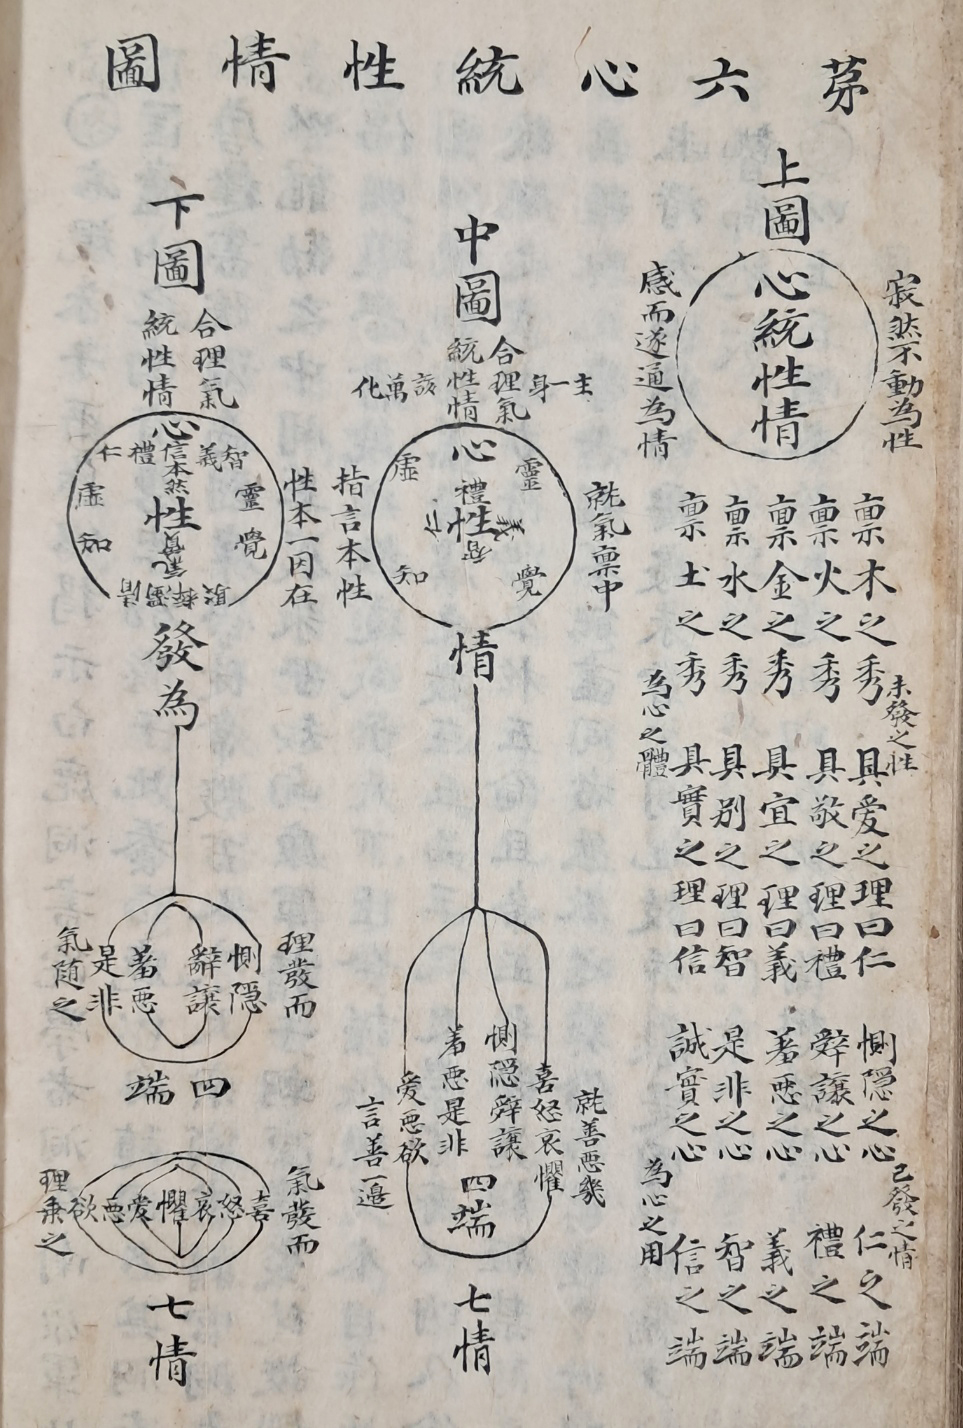 第六心統性情圖
上圖
心統性情
寂然不動為性
感而遂通為情
稟木之秀 具愛之理曰仁 惻隱之心 仁之端
稟火之秀 具敬之理曰禮 辭讓之心 禮之端
稟金之秀 具宜之理曰義 羞惡之心 義之端
稟水之秀 具別之理曰智 是非之心 智之端
稟土之秀 具實之理曰信 誠實之心 信之端
未發之性
為心之體
已發之情
為心之用
中圖
合理氣
統性情
主一身
該萬化
心
禮
性
仁
義
智
虛
靈
知
覺
就氣稟中
指言本性
情
惻隱辭讓
羞惡是非
四端
喜怒哀懼
愛惡欲
就善惡幾
言善一邊
七情
下圖
合理氣
統性情
心
智義信禮仁
本然
性
氣質
虛
靈
知
覺
性本一因在
發為
惻隱
辭讓
羞惡
是非
理發而
氣隨之
四端
喜怒哀懼愛惡欲
氣發而
理乗之
七情